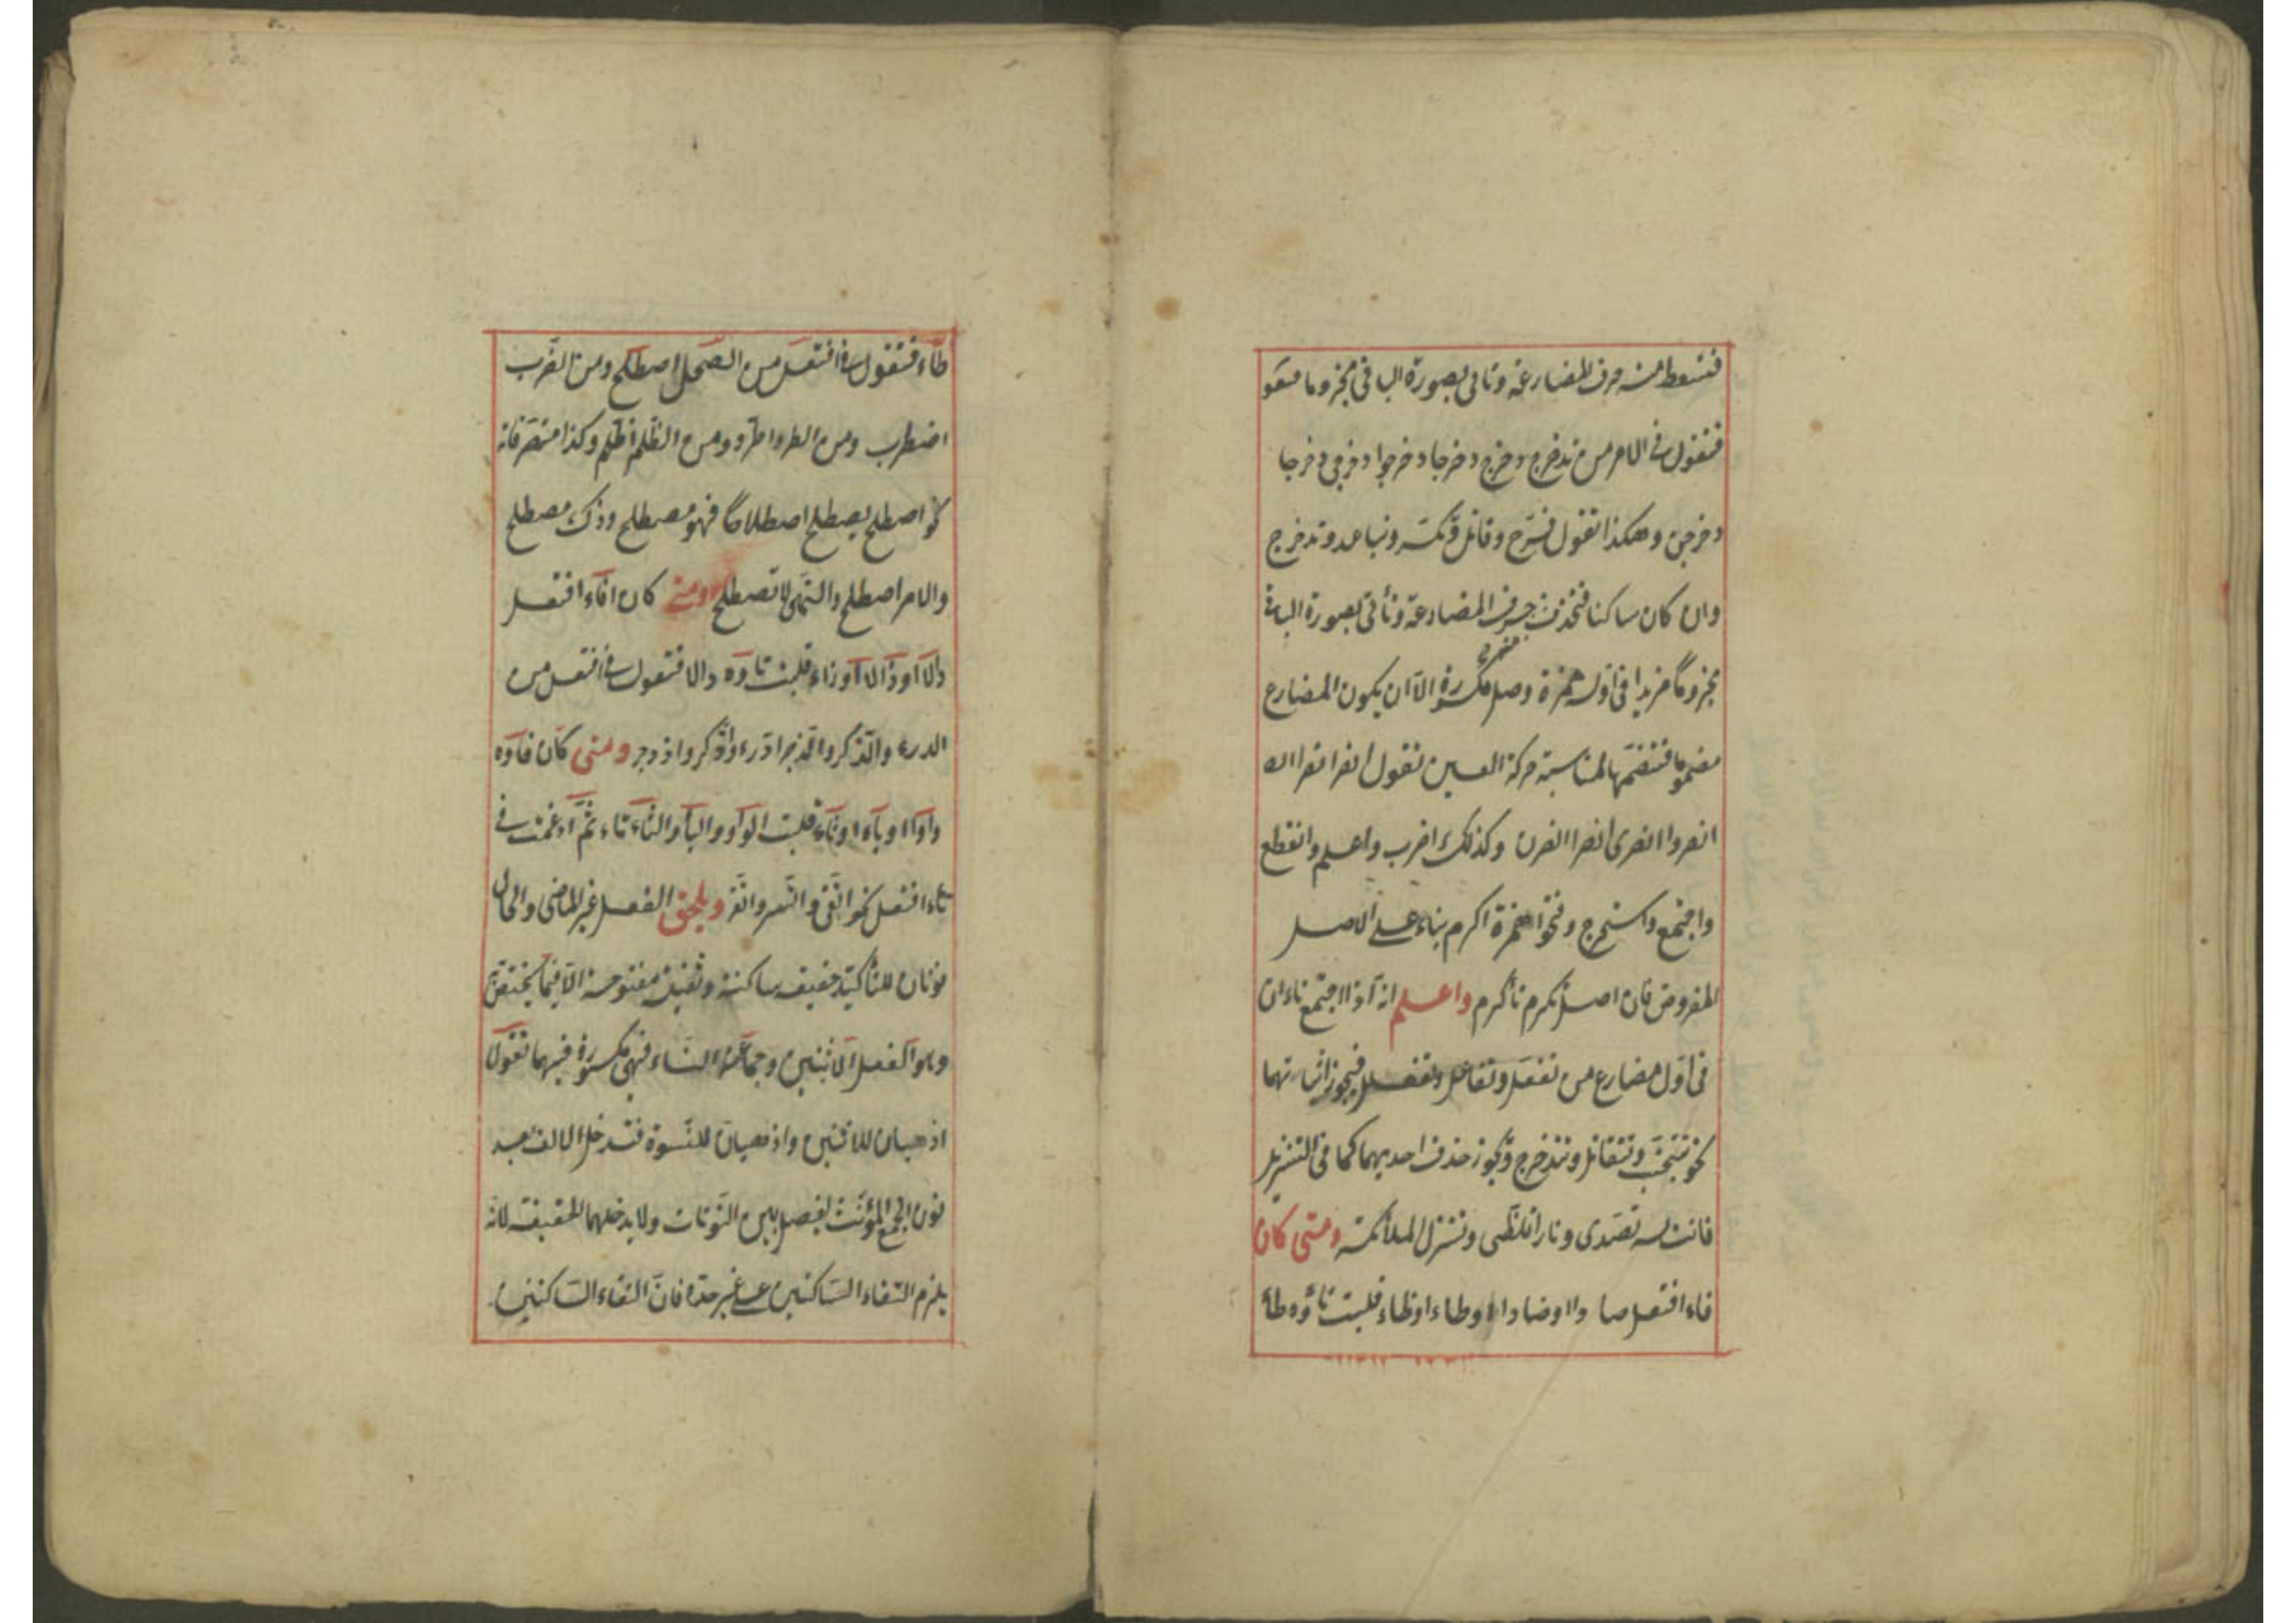 فتسقط منه حرف المضارعة وتاتى بصورة الباقى مجزوما فتقو
فتقول فى الامر من تدخرج دخرج دخرجا دخرجوا دخرجى دخرجا
دخرجن وهكذا تقول فى فرّح وقاتل وتكسّر وتباعد وتدخرج
وان كان ساكنا فتحذف حرف المضارعة وتأتى بصورة الباقى
مجزومًا مزيدا فى اوله همزة وصل مكسورة الّا ان يكون المضارع
مضموما فتضمّها لمناسبة حركة العين تقول انصر انصرا
انصروا انصرى انصرا انصرن وكذلك اضرب واعلم وانقطع
واجتمع واستخرج وفتحوا همزة اكرم بناء على الاصل
المفروض فان اصل تكرم تأكرم واعلم انه اذا اجتمع تاءان
فى اوّل مضارع من تفعّل وتفاعل وتفعلل فيجوز اثباتهما
نحو تتجنّب وتتقاتل وتتدخرج ويجوز حذف احديهما كما فى التنزيل
فانت له تصدّى ونارا تلظّى وتنزل الملائكة ومتى كان
فاء افتعل صادا او ضادا او طاء او ظاء قلبت تاؤه طاء
طاء فتقول فى افتعل من الصلح اصطلح ومن الضّرب
اضطرب ومن الطرد اطّرد ومن الظّلم اظّلم وكذا متصرفاته
نحو اصطلح يصطلح اصطلاحًا فهو مصطلح وذاك مصطلح
والامر اصطلح والنّهى لا تصطلح ومتى كان فاء افتعل
دالا او ذالا او زاء قلبت تاؤه دالا فتقول فى افتعل من
الدرء والذّكر والزجر ادّرء واذّكر وازدجر ومتى كان فاؤه
واوا او ياء او ثاء قلبت الواو والياء والثاء تاء ثمّ ادغمت فى
تاء افتعل نحو اتّقى واتّسر واتّغر ويلحق الفعل غير الماضى والحال
نونان للتأكيد خفيفة ساكنة وثقيلة مفتوحة الّا فيما يختصّ
وهو الفعل الاثنين وجماعة النساء فهى مكسورة فيهما تقول
اذهبان للاثنين واذهبنان للنّسوة فتدخل الالف بعد
نون الجمع المؤنّث لفصل بين النّونات ولا يدخلهما الخفيفة لانّه
يلزم التقاء السّاكنين على غير حدّه فانّ التقاء السّاكنين